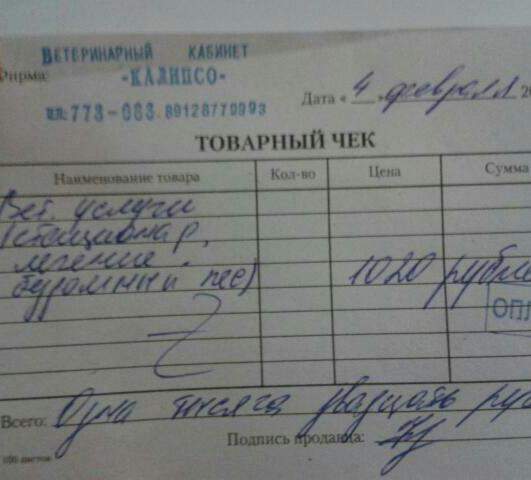 ВЕТЕРИНАРНЫЙ КАБИНЕТ
Фирма: «КАЛИПСО»
Дата « 4 » февраля 20
тел: 773-083. 89128770993
ТОВАРНЫЙ ЧЕК
Наименование товара Кол-во Цена Сумма
Вет. услуги
(стационар,
лечение
бездомный пес) 1020 рубле
ОПЛ
Всего: Одна тысяча двадцать руб
Подпись продавца:
100 листов